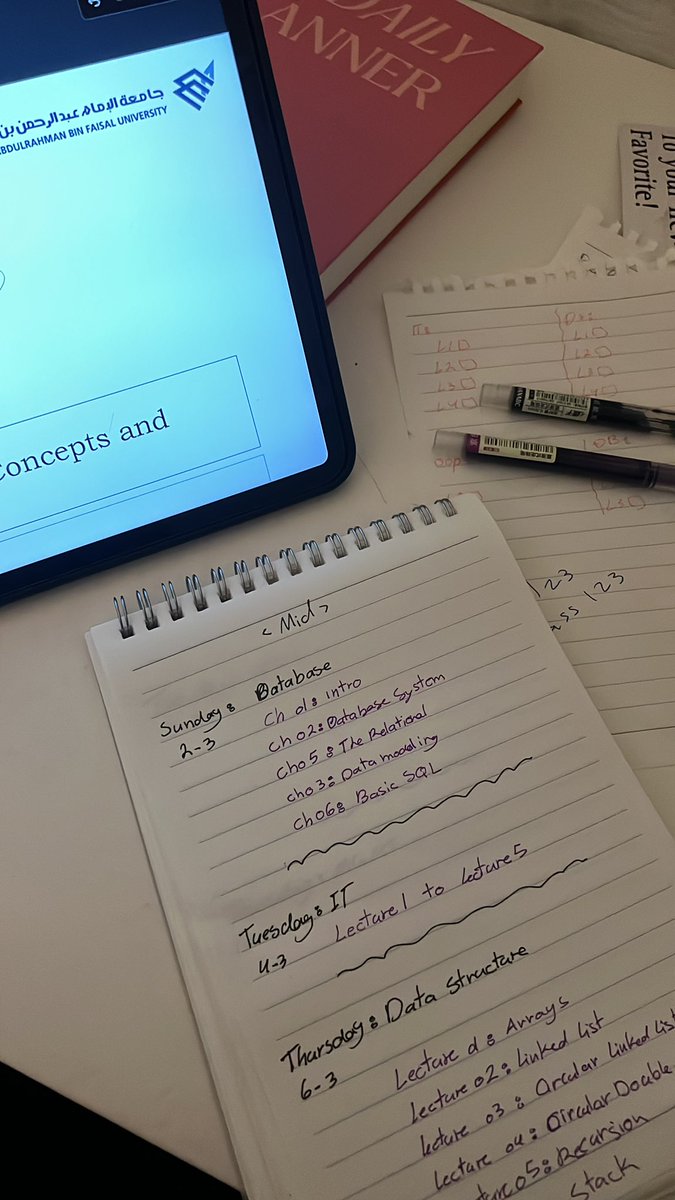 جامعة الإمام عبدالرحمن بن
ABDULRAHMAN BIN FAISAL UNIVERSITY
Concepts and
DAILY
ANNER
To your New
Favorite!
ITs
L1
L2
L3
L4
Ds:
L1
L2
L3
L4
OOP
DB:
L5
123
ass 123
<Mid>
Sunday: Database
2-3
Ch 01: intro
Ch 02: Database System
Ch05: The Relational
Ch03: Data modeling
Ch06: Basic SQL
Tuesday: IT
4-3
Lecture 1 to Lecture 5
Thursday: Data Structure
6-3
Lecture 01: Arrays
Lecture 02: Linked List
Lecture 03: Circular Linked List
Lecture 04: Circular Double
ture 05: Recursion
Stack